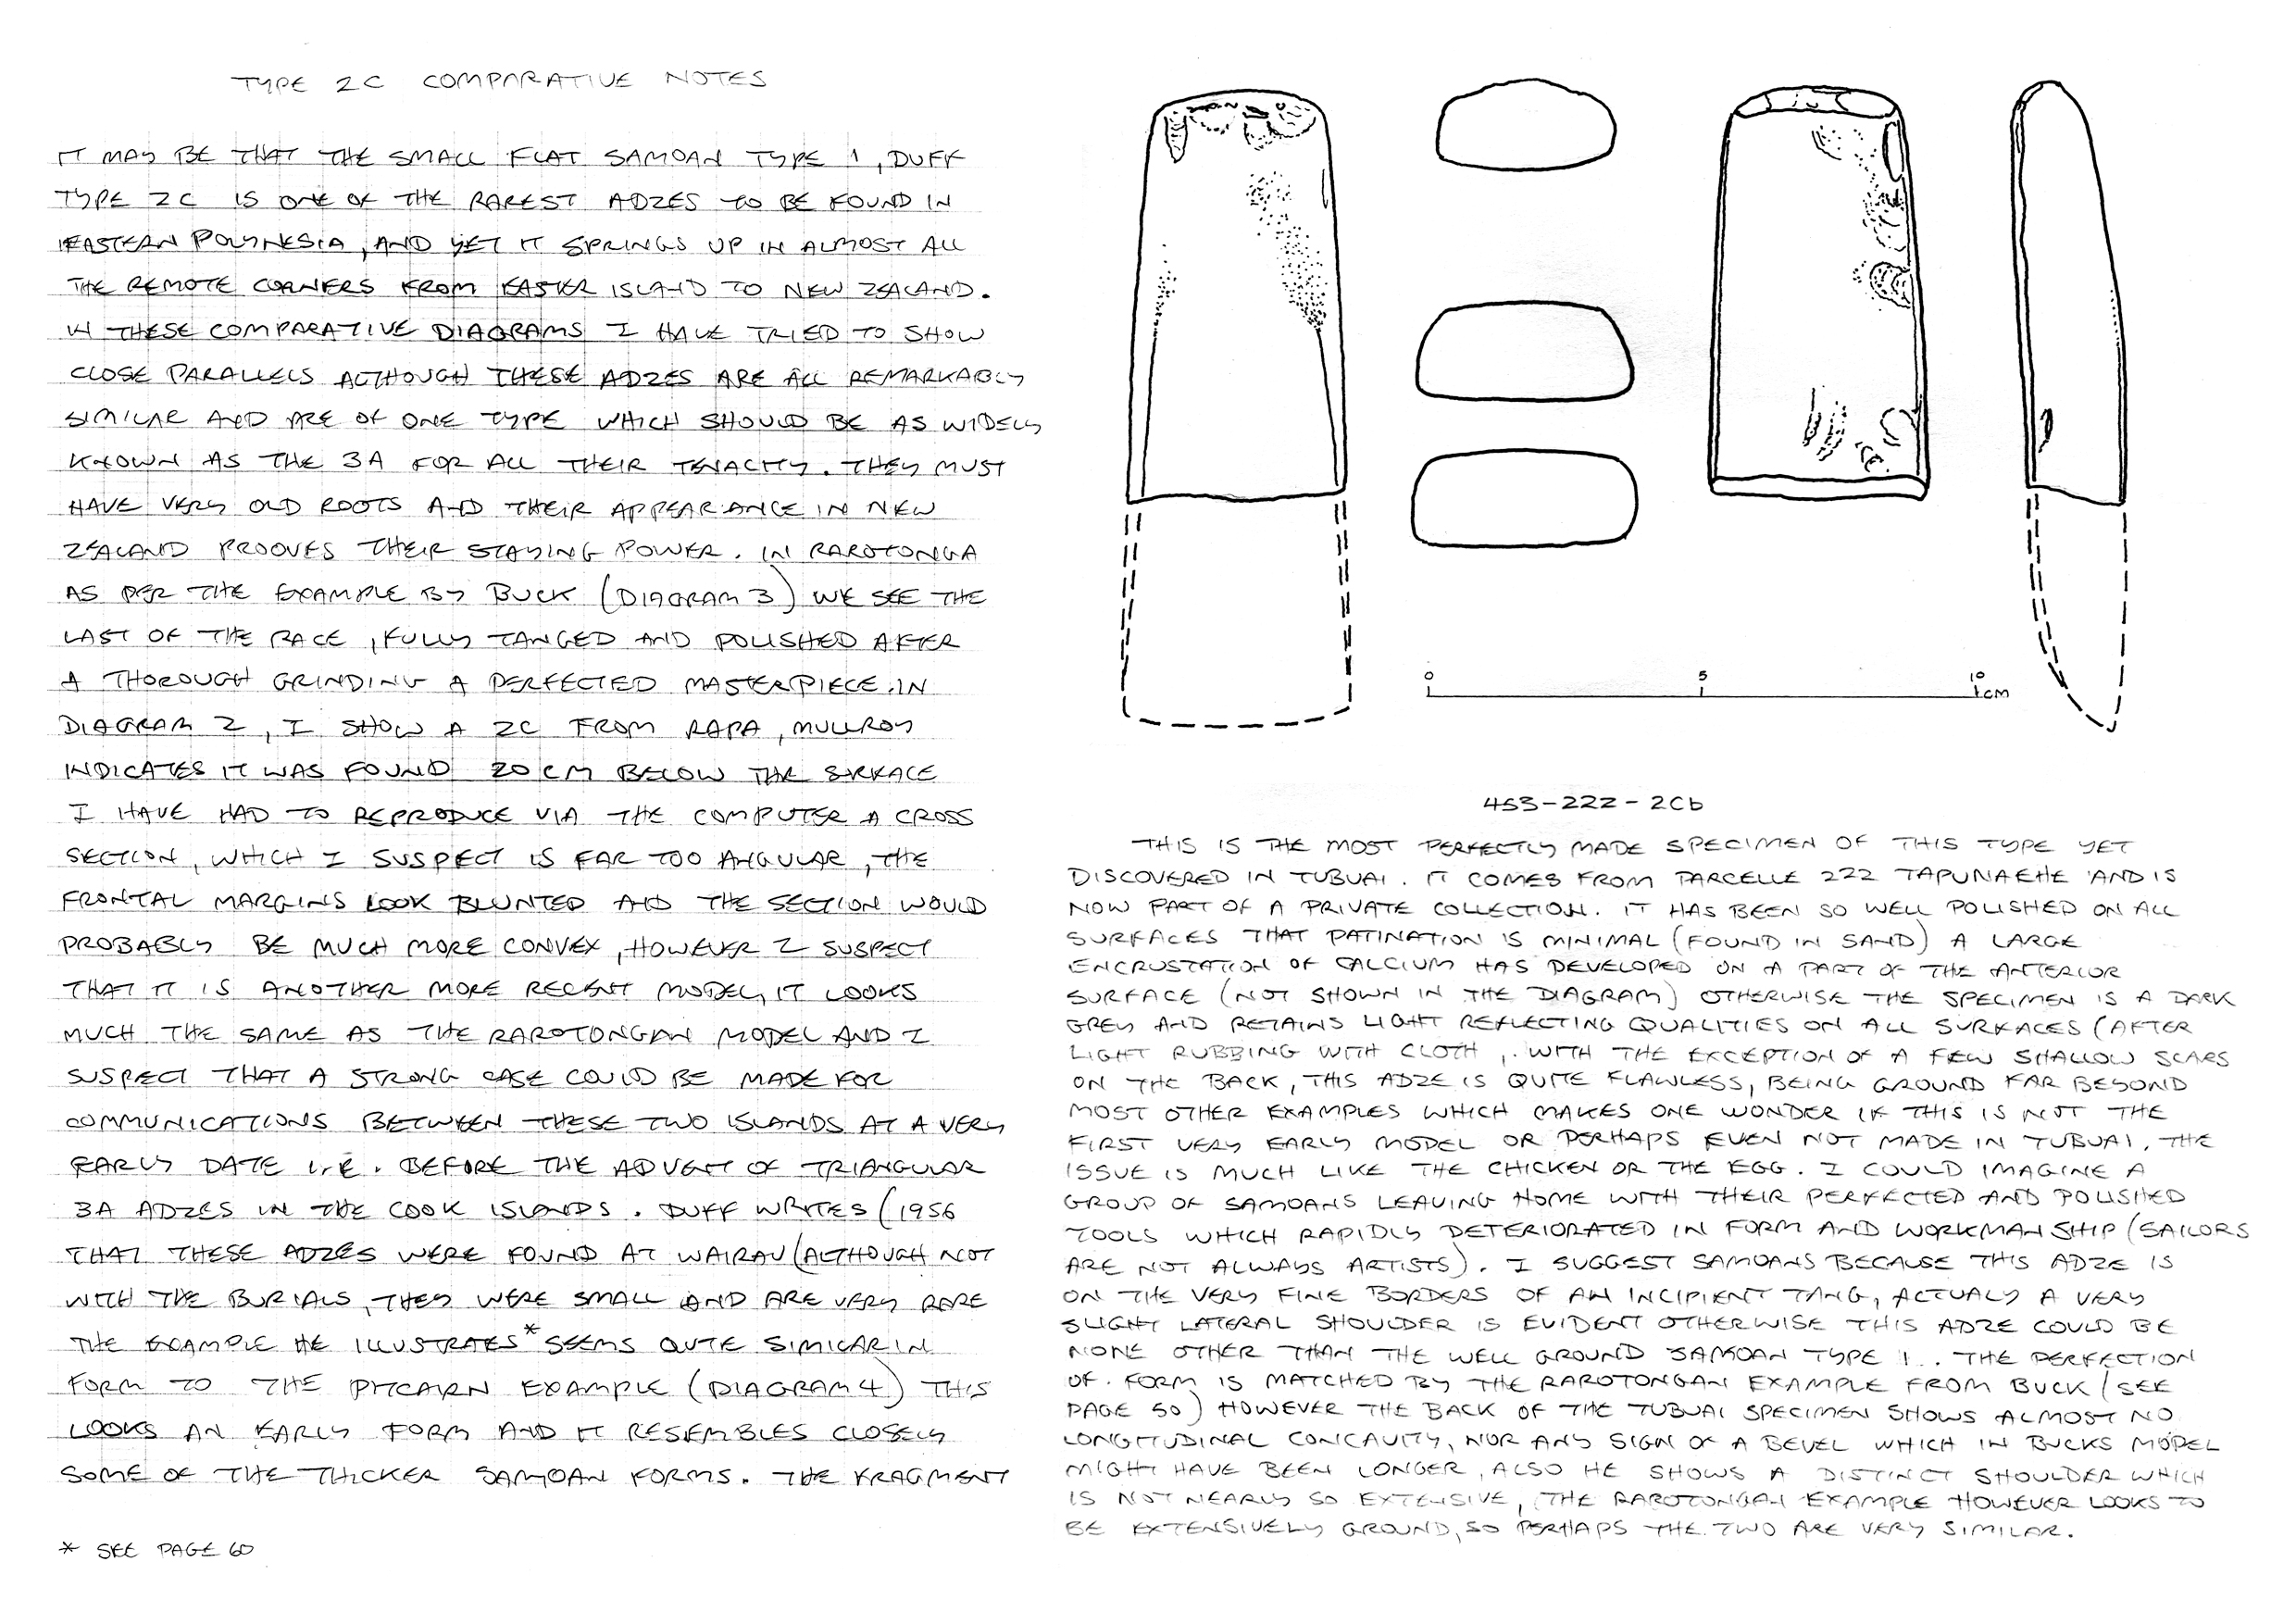 TYPE 2C COMPARATIVE NOTES
IT MAY BE THAT THE SMALL FLAT SAMOAN TYPE 1, DUFF
TYPE 2C IS ONE OF THE RAREST ADZES TO BE FOUND IN
EASTERN POLYNESIA, AND YET IT SPRINGS UP IN ALMOST ALL
THE REMOTE CORNERS FROM EASTER ISLAND TO NEW ZEALAND.
IN THESE COMPARATIVE DIAGRAMS I HAVE TRIED TO SHOW
CLOSE PARALLELS ALTHOUGH THESE ADZES ARE ALL REMARKABLY
SIMILAR AND ARE OF ONE TYPE WHICH SHOULD BE AS WIDELY
KNOWN AS THE 3A FOR ALL THEIR TENACITY. THEY MUST
HAVE VERY OLD ROOTS AND THEIR APPEARANCE IN NEW
ZEALAND PROOVES THEIR STAYING POWER. IN RAROTONGA
AS PER THE EXAMPLE BY BUCK (DIAGRAM 3) WE SEE THE
LAST OF THE RACE, FULLY TANGED AND POLISHED AFTER
A THOROUGH GRINDING A PERFECTED MASTERPIECE. IN
DIAGRAM 2, I SHOW A 2C FROM RAPA, MULLROY
INDICATES IT WAS FOUND 20 CM BELOW THE SURFACE
I HAVE HAD TO REPRODUCE VIA THE COMPUTER A CROSS
SECTION, WHICH I SUSPECT IS FAR TOO ANGULAR, THE
FRONTAL MARGINS LOOK BLUNTED AND THE SECTION WOULD
PROBABLY BE MUCH MORE CONVEX, HOWEVER I SUSPECT
THAT IT IS ANOTHER MORE RECENT MODEL, IT LOOKS
MUCH THE SAME AS THE RAROTONGAN MODEL AND I
SUSPECT THAT A STRONG CASE COULD BE MADE FOR
COMMUNICATIONS BETWEEN THESE TWO ISLANDS AT A VERY
EARLY DATE I.E. BEFORE THE ADVENT OF TRIANGULAR
3A ADZES IN THE COOK ISLANDS. DUFF WRITES (1956
THAT THESE ADZES WERE FOUND AT WAIRAU (ALTHOUGH NOT
WITH THE BURIALS, THEY WERE SMALL AND ARE VERY RARE
THE EXAMPLE HE ILLUSTRATES* SEEMS QUTE SIMILAR IN
FORM TO THE PITCAIRN EXAMPLE (DIAGRAM 4) THIS
LOOKS AN EARLY FORM AND IT RESEMBLES CLOSELY
SOME OF THE THICKER SAMOAN FORMS. THE FRAGMENT
* SEE PAGE 60
0 5 10 cm
453-222-2Cb
THIS IS THE MOST PERFECTLY MADE SPECIMEN OF THIS TYPE YET
DISCOVERED IN TUBUAI. IT COMES FROM PARCELLE 222 TAPUNAEHE AND IS
NOW PART OF A PRIVATE COLLECTION. IT HAS BEEN SO WELL POLISHED ON ALL
SURFACES THAT PATINATION IS MINIMAL (FOUND IN SAND) A LARGE
ENCRUSTATION OF CALCIUM HAS DEVELOPED ON A PART OF THE ANTERIOR
SURFACE (NOT SHOWN IN THE DIAGRAM) OTHERWISE THE SPECIMEN IS A DARK
GREY AND RETAINS LIGHT REFLECTING QUALITIES ON ALL SURFACES (AFTER
LIGHT RUBBING WITH CLOTH, . WITH THE EXCEPTION OF A FEW SHALLOW SCARS
ON THE BACK, THIS ADZE IS QUITE FLAWLESS, BEING GROUND FAR BEYOND
MOST OTHER EXAMPLES WHICH MAKES ONE WONDER IF THIS IS NOT THE
FIRST VERY EARLY MODEL OR PERHAPS EVEN NOT MADE IN TUBUAI. THE
ISSUE IS MUCH LIKE THE CHICKEN OR THE EGG. I COULD IMAGINE A
GROUP OF SAMOANS LEAVING HOME WITH THEIR PERFECTED AND POLISHED
TOOLS WHICH RAPIDLY DETERIORATED IN FORM AND WORKMANSHIP (SAILORS
ARE NOT ALWAYS ARTISTS). I SUGGEST SAMOANS BECAUSE THIS ADZE IS
ON THE VERY FINE BORDERS OF AN INCIPIENT TANG, ACTUALY A VERY
SLIGHT LATERAL SHOULDER IS EVIDENT OTHERWISE THIS ADZE COULD BE
NONE OTHER THAN THE WELL GROUND SAMOAN TYPE 1. . THE PERFECTION
OF FORM IS MATCHED BY THE RAROTONGAN EXAMPLE FROM BUCK (SEE
PAGE 50) HOWEVER THE BACK OF THE TUBUAI SPECIMEN SHOWS ALMOST NO
LONGITUDINAL CONCAVITY, NOR ANY SIGN OF A BEVEL WHICH IN BUCKS MODEL
MIGHT HAVE BEEN LONGER, ALSO HE SHOWS A DISTINCT SHOULDER WHICH
IS NOT NEARLY SO EXTENSIVE, THE RAROTONGAN EXAMPLE HOWEVER LOOKS TO
BE EXTENSIVELY GROUND, SO PERHAPS THE TWO ARE VERY SIMILAR.